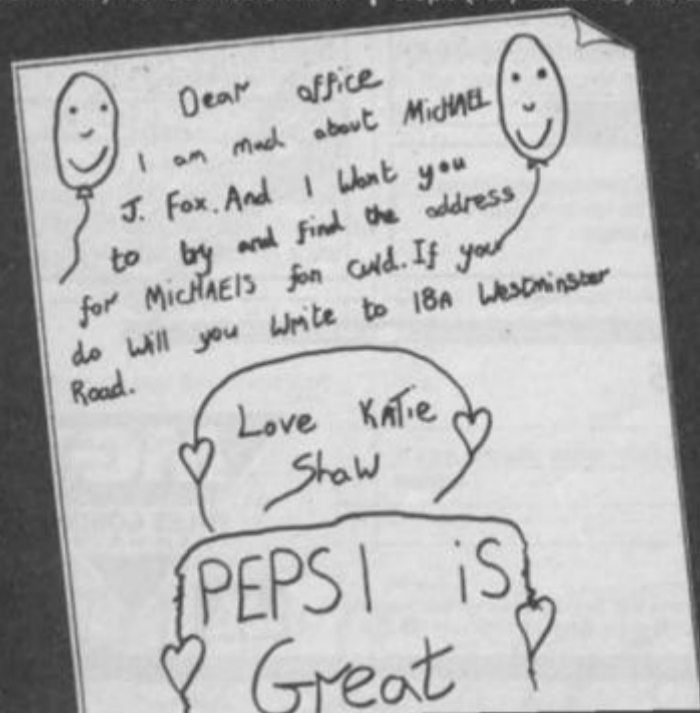 Dear office
I am mad about MicHAEL
J. Fox. And I Want you
to try and find the address
for MicHAEls fan cwd. If you
do Will you Write to 18A Westminster
Road.
Love KATie
Shaw
PEPSI iS
Great